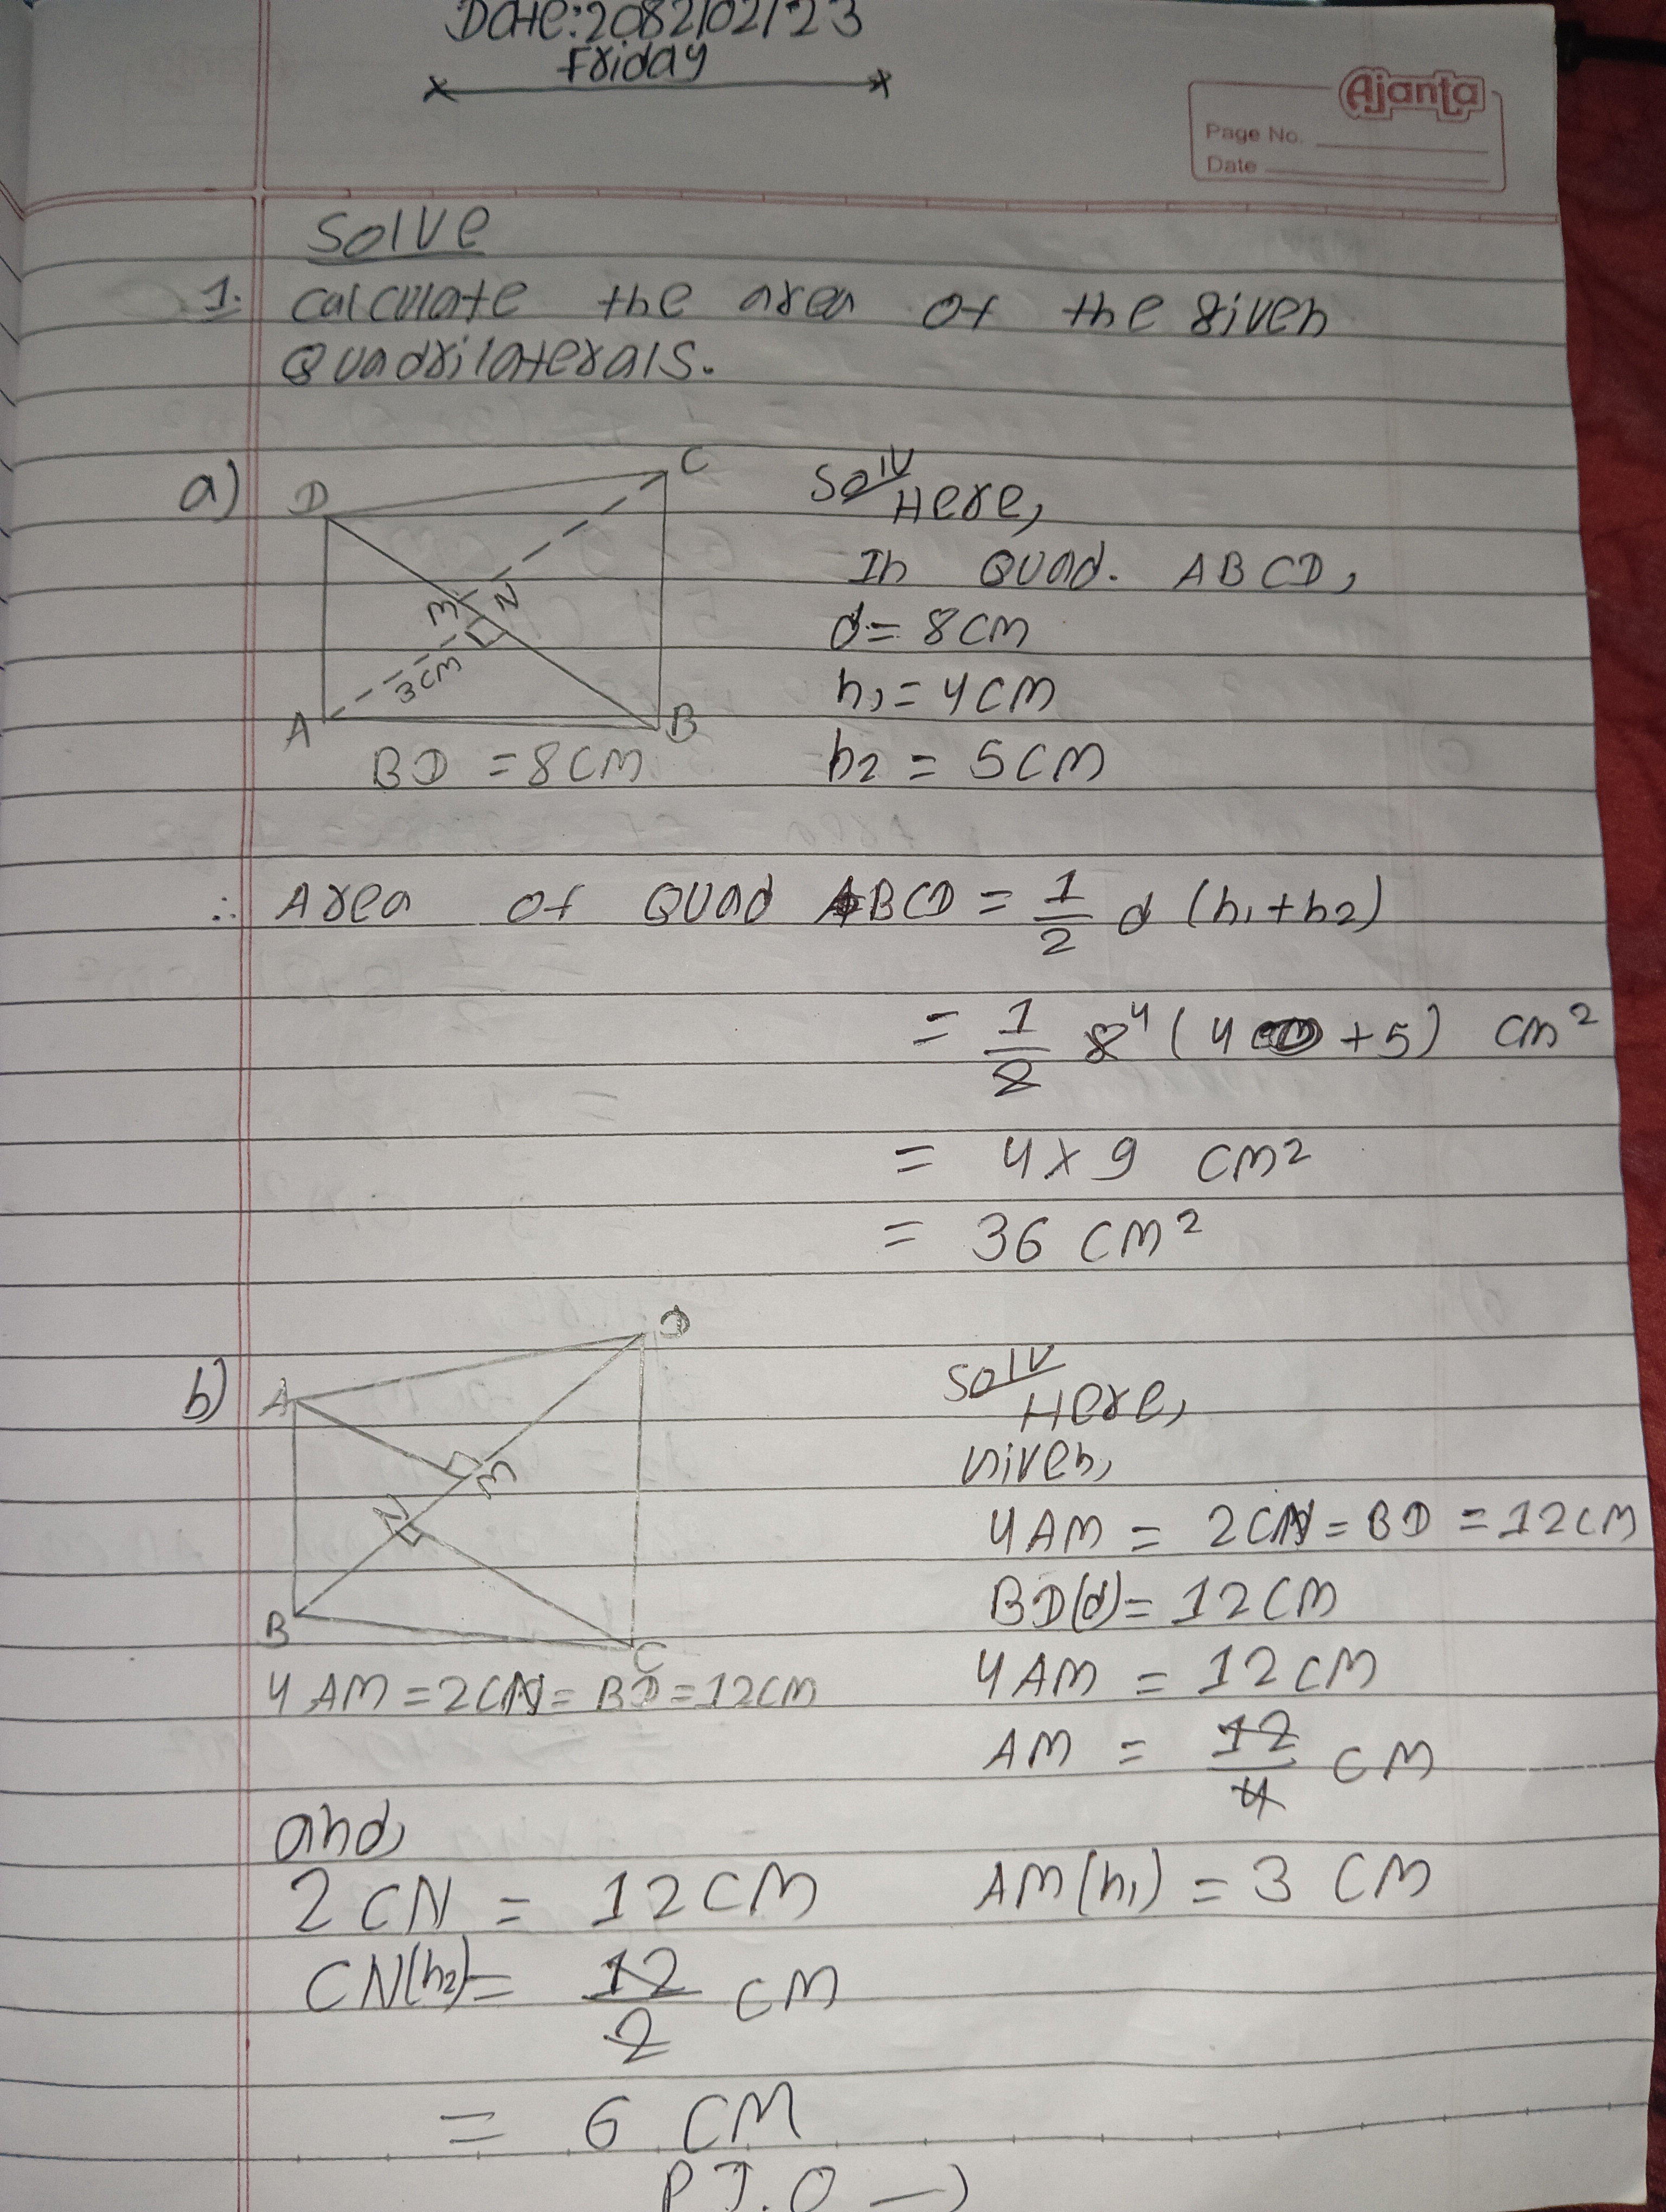 Date: 2082/02/23
Friday
Ajanta
Page No.
Date
Solve
1. Calculate the area of the given
Quadrilaterals.
a)
D
C
M
N
3cm
A
B
BD = 8cm
Solⁿ
Here,
In Quad. ABCD,
d = 8cm
h1 = 4cm
h2 = 5cm
∴ Area of Quad ABCD = 1/2 d (h1+h2)
= 1/2 8 4 (4 + 5) cm²
= 4 x 9 cm²
= 36 cm²
b)
A
D
M
N
B
C
4AM = 2CN = BD = 12cm
Solⁿ
Here,
Given,
4AM = 2CN = BD = 12cm
BD(d) = 12cm
4AM = 12cm
AM = 12/4 cm
AM(h1) = 3 cm
and,
2CN = 12cm
CN(h2) = 12/2 cm
= 6 cm
P.T.O →